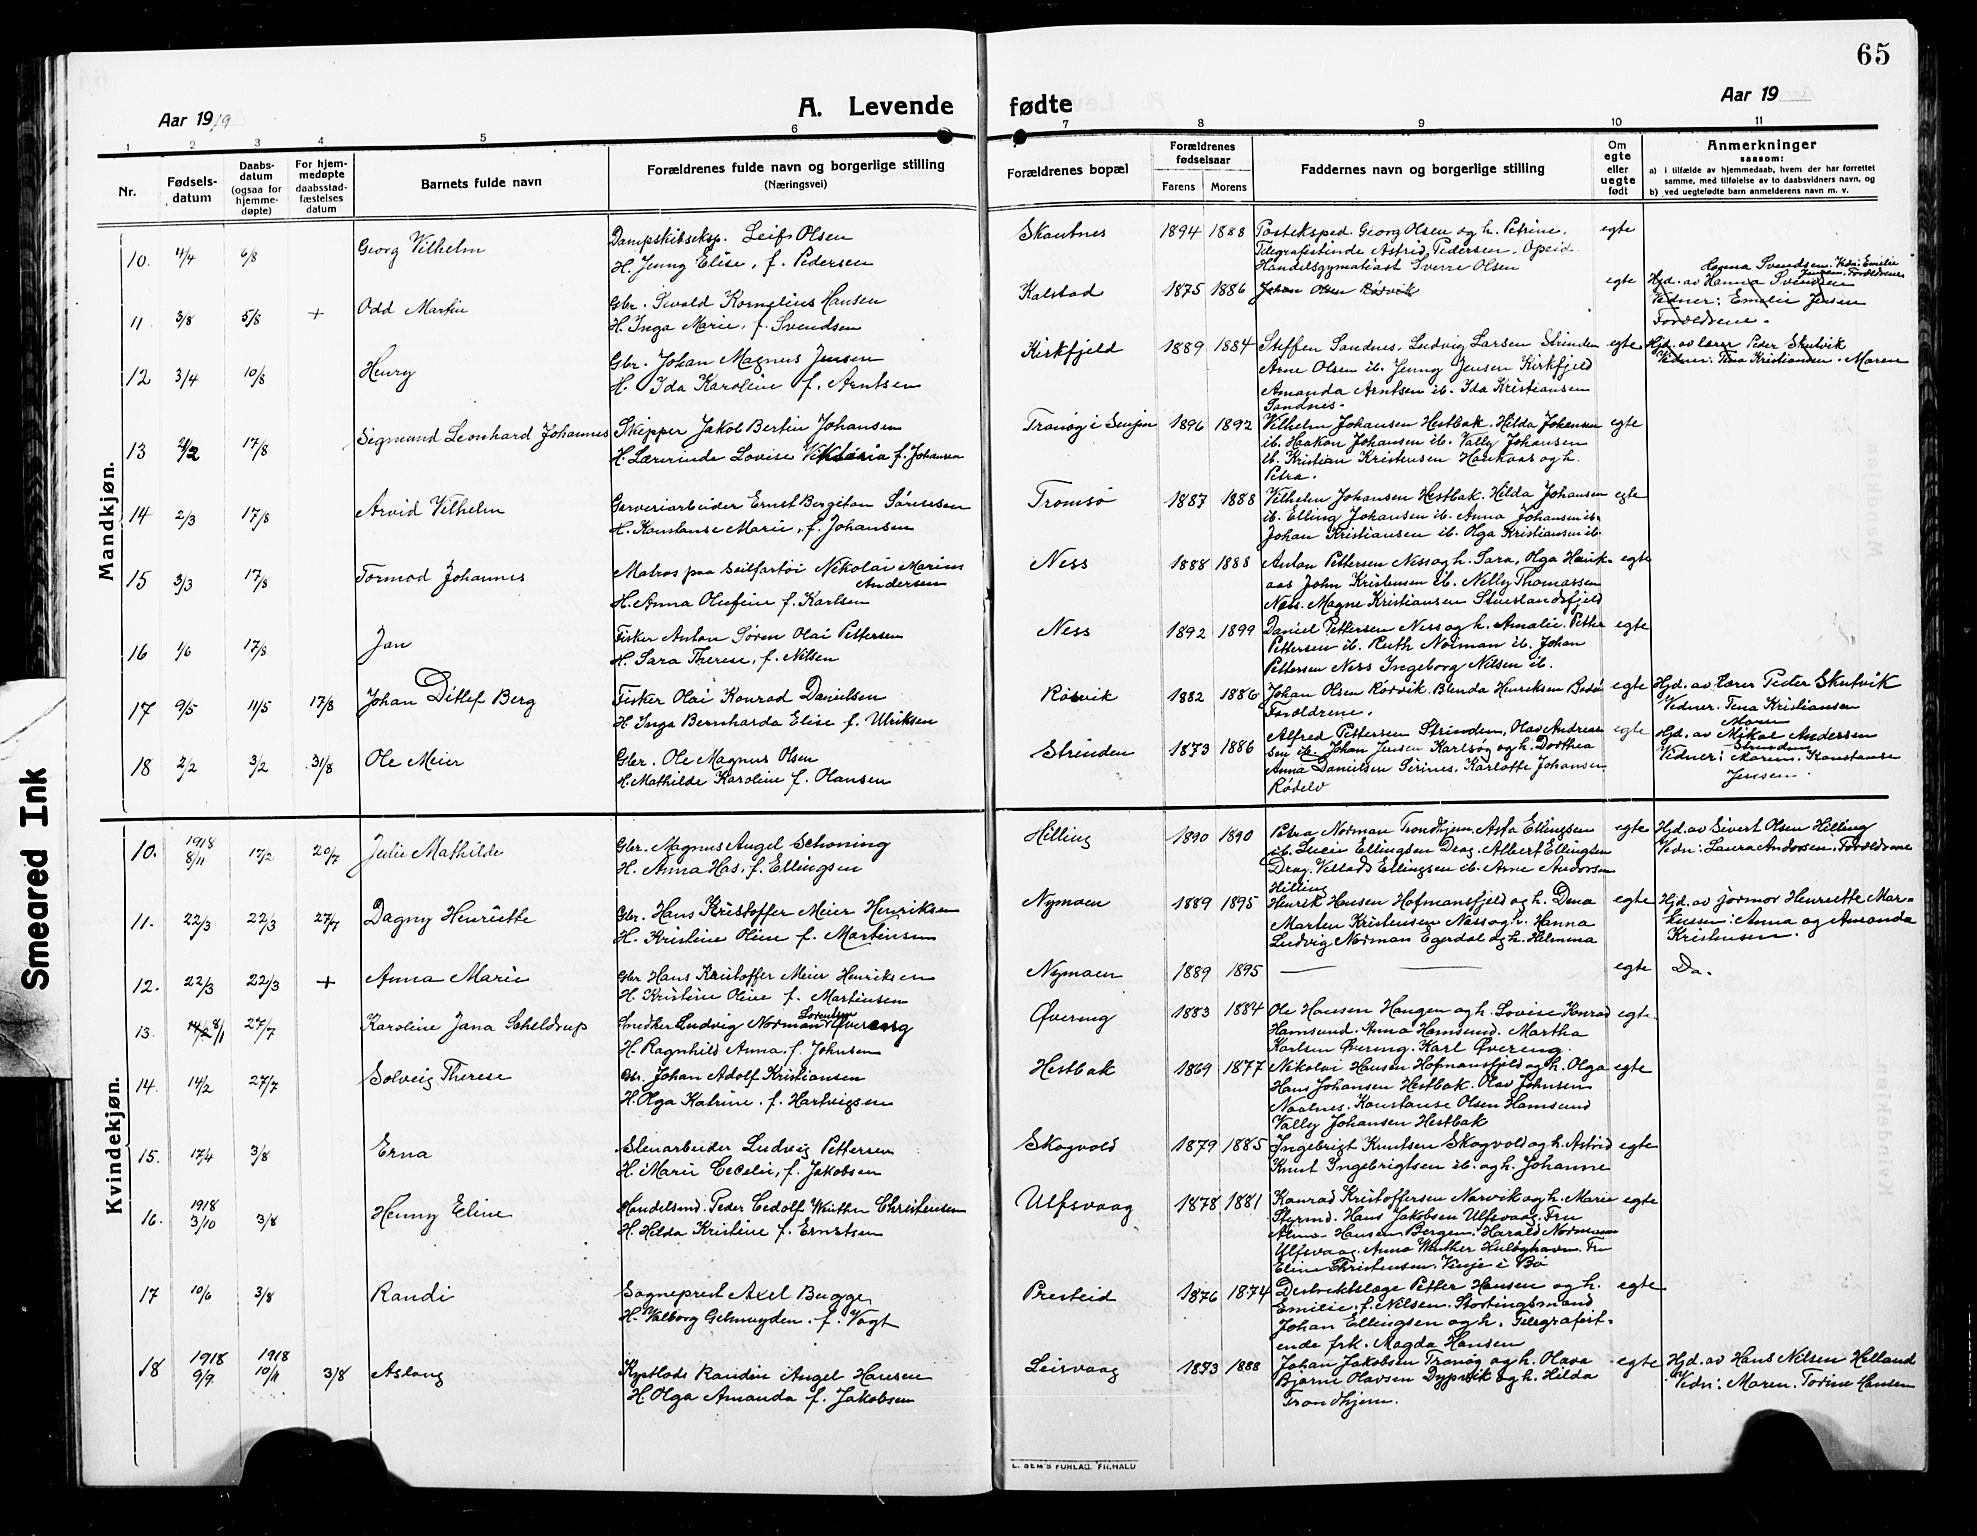 65
Aar 1919
A. Levende fødte
Aar 19
1 2 3 4 5 6 7 8 9 10 11
Nr.
Fødsels-
datum
Daabs-
datum
(ogsaa for
hjemme-
døpte)
For hjem-
medøpte
daabsstad-
fæstelses
datum
Barnets fulde navn
Forældrenes fulde navn og borgerlige stilling
(Næringsvei)
Forældrenes bopæl
Forældrenes
fødselsaar
Farens Morens
Faddernes navn og borgerlige stilling
Om
egte
eller
uegte
født
Anmerkninger
saasom:
a) i tilfælde av hjemmedaab, hvem der har forrettet
samme, med tilføielse av to daabsvidners navn, og
b) ved uegtefødte barn anmelderens navn m. v.
Mandkjøn.
10. 4/4 6/8 Georg Vilhelm
Dampskibseksp. Leif Olsen
H. Jenny Elise, f. Pedersen
Skautnes 1894 1888
Posteksped. Georg Olsen og h. Petrine,
Telegrafistinde Astrid Pedersen, Opeid
Handelsgymnasiast Sverre Olsen
egte
11 3/8 5/8 + Odd Martin
Gbr. Sivald Kornelius Hansen
H. Inga Marie, f. Svendsen
Kalstad 1875 1886
Johan Olsen Rørvik
egte
Hanna Svendsen. Vidn: Emelie
Jensen. Forældrene
Hjd. av Hanna Svendsen
Vidner: Emelie Jensen
Forældrene.
12 3/4 10/8 Henry
Gbr. Johan Magnus Jensen
H. Ida Karoline f. Arntsen
Kirkfjeld 1889 1884
Steffen Sandnes, Ludvig Larsen Strinden
Arne Olsen ib. Jenny Jensen Kirkfjeld
Amanda Arntsen ib. Ida Kristiansen
Sandnes.
egte
Hjd. av lærer Peder Skutvik
Vidner: Tina Kristiansen. Maren
13 2/2 17/8 Sigmund Leonhard Johannes
Skipper Jakob Bertin Johansen
H. Lærerinde Lovise Viktoria f. Johansen
Tranøy i Senjen 1896 1892
Vilhelm Johansen Hestbak. Hilda Johansen
ib. Haakon Johansen ib. Vally Johansen
ib. Kristian Kristensen Haukaas og h.
Petra.
egte
14 2/3 17/8 Arvid Vilhelm
Garveriarbeider Ernst Bergiton Sørensen
H. Konstanse Marie, f. Johansen
Tromsø 1887 1888
Vilhelm Johansen Hestbak. Hilda Johansen
ib. Elling Johansen ib. Anna Johansen ib.
Johan Kristiansen ib. Olga Kristiansen ib.
egte
15 3/3 17/8 Tormod Johannes
Matros paa seilfartøi Nikolai Marius
Andersen
H. Anna Olufine f. Karlsen
Ness 1888 1888
Anton Pettersen Ness og h. Sara, Olga Hauk-
aas John Kristensen ib. Nelly Thomassen
Ness. Magne Kristiansen Stuerlandsfjeld
egte
16 1/6 17/8 Jan
Fisker Anton Søren Olai Pettersen
H. Sara Therese, f. Nilsen
Ness 1892 1899
Daniel Pettersen Ness og h. Amalie. Petter
Pettersen ib. Ruth Norman ib. Johan
Pettersen Ness Ingeborg Nilsen ib.
egte
17 9/5 11/5 17/8 Johan Ditlef Berg
Fisker Olai Konrad Danielsen
H. Inga Bernharda Elise f. Ulriksen
Rørvik 1882 1886
Johan Olsen Rørvik. Blenda Henriksen Bodø
Forældrene.
egte
Hjd. av lærer Peder Skutvik
Vidner. Tina Kristiansen
Maren
18 2/2 3/2 31/8 Ole Meier
Gbr. Ole Magnus Olsen
H. Mathilde Karoline f. Olausen
Strinden 1873 1886
Alfred Pettersen Strinden, Olav Andreas-
sen ib. Johan Jensen Karlsøy og h. Dorthea
Anna Danielsen Sirines, Karlotte Johansen
Rødelv
egte
Hjd. av Mikal Andersen
Strinden
Vidner: Maren, Konstanse
Jensen.
Kvindekjøn.
10. 1918 8/11 17/2 20/7 Julie Mathilde
Gbr. Magnus Angel Schøning
H. Anna Has. f. Ellingsen
Hilling 1890 1890
Petra Norman Trondhjem. Asta Ellingsen
ib. Lucie Ellingsen Drag. Albert Ellingsen
Drag. Villads Ellingsen ib. Arne Andorsen
Hilling
egte
Hjd. av Sivert Olsen Hilling
Vidn: Laura Andorsen. Forældrene
11. 22/3 22/3 27/7 Dagny Henriette
Gbr. Hans Kristoffer Meier Henriksen
H. Kristine Oline f. Martinsen
Nymoen 1889 1895
Henrik Hansen Hofmansfjeld og h. Dina
Marten Kristensen Ness og h. Hanna
Ludvig Norman Egerdal og h. Helmina
egte
Hjd. av jormor Henriette Mar-
tinsen: Anna og Amanda
Kristensen.
12. 22/3 22/3 + Anna Marie
Gbr Hans Kristoffer Meier Henriksen
H. Kristine Oline f. Martinsen
Nymoen 1889 1895 — — egte Do.
13. 14/2 8/1 27/7 Karoline Jana Scheldrup
Snedker Ludvig Norman Lorentsen Øvereng
H. Ragnhild Anna. f. Johnsen
Øvereng 1883 1884
Ole Hansen Haugen og h. Lovise. Konrad
Hamsund. Anna Hamsund. Martha
Karlsen Øvereng. Karl Øvereng
egte
14. 14/2 27/7 Solveig Therese
Gbr. Johan Adolf Kristiansen
H. Olga Katrine. f. Hartvigsen
Hestbak 1869 1877
Nikolai Hansen Hofmansfjeld og h. Olga
Hans Johansen Hestbak. Olav Johnsen
Naalnes. Konstanse Olsen Hamsund
Vally Johansen Hestbak
egte
15. 17/4 3/8 Erna
Stenarbeider Ludvig Pettersen
H. Marie Cecelie, f. Jakobsen
Skogvold 1879 1885
Ingebrigt Knutsen Skogvold og h. Astrid
Knut Ingebrigtsen ib. og h. Johanne
egte
16. 1918 3/10 3/8 Henny Eline
Handelsmd. Peder Cedolf Winther Christensen
H. Hilda Kristine f. Ernstsen
Ulfsvaag 1878 1881
Konrad Kristoffersen Narvik og h. Marie
Styrmd. Hans Jakobsen Ulfsvaag. Fru
Alma Hansen Bergen. Harald Normann
Ulfsvaag. Anna Winther Huløyhavn. Fru
Eline Christensen. Vinje i Bø
egte
17 10/6 3/8 Randi
Sogneprest Axel Bugge
H. Valborg Gelmuyden. f. Vogt
Presteid 1876 1874
Destriktslæge Petter Hansen og h.
Emilie. f. Nilsen. Stortingsmand
Johan Ellingsen og h. Telegrafist-
inde frk. Magda Hansen
egte
18 1918 9/9 1918 10/11 3/8 Aslaug
Randin Angel Hansen
H. Olga Amanda f. Jakobsen
Leirvaag 1873 1888
Johan Jakobsen Tranøy og h. Olava
Bjarne Olavsen Dypvik og h. Hilda
Trondhjem.
egte
Hjd. av Hans Nilsen Helland
Vidn: Maren. Torine Hansen
E. SEM'S FORLAG. FR.HALD
Smeared Ink